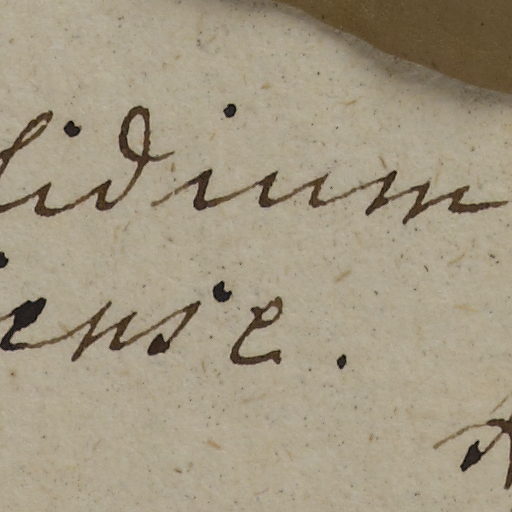 lidium
ense.